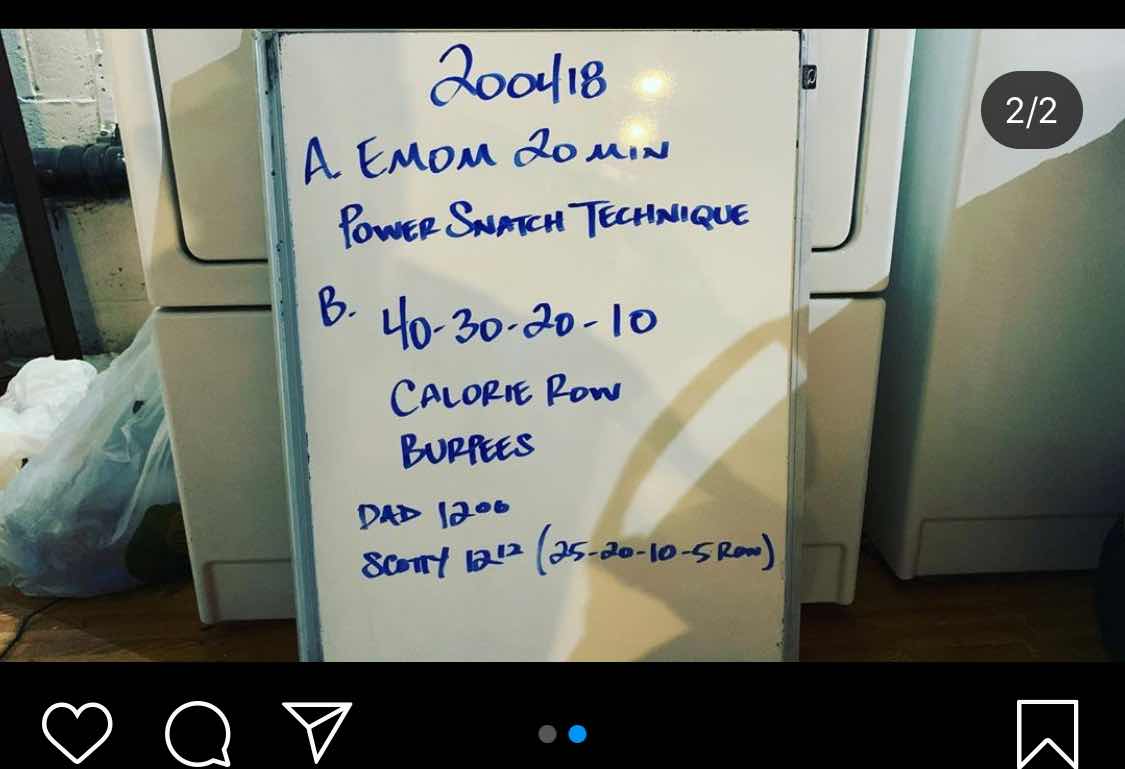 200418
2/2
A. EMOM 20 MIN
POWER SNATCH TECHNIQUE
B. 40-30-20-10
CALORIE ROW
BURPEES
DAD 1200
SCOTTY 1212 (25-20-10-5 ROW)